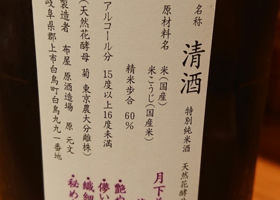 名称 清酒 特別純米酒 天然花酵
原材料名 米(国産)
米こうじ(国産米)
精米歩合 60%
アルコール分 15度以上16度未満
(天然花酵母 菊 東京農大分離株)
製造者 布屋 原酒造場 原 元文
岐阜県郡上市白鳥町白鳥九九一番地
月下
・艶や
・儚い
・繊細
・秘め